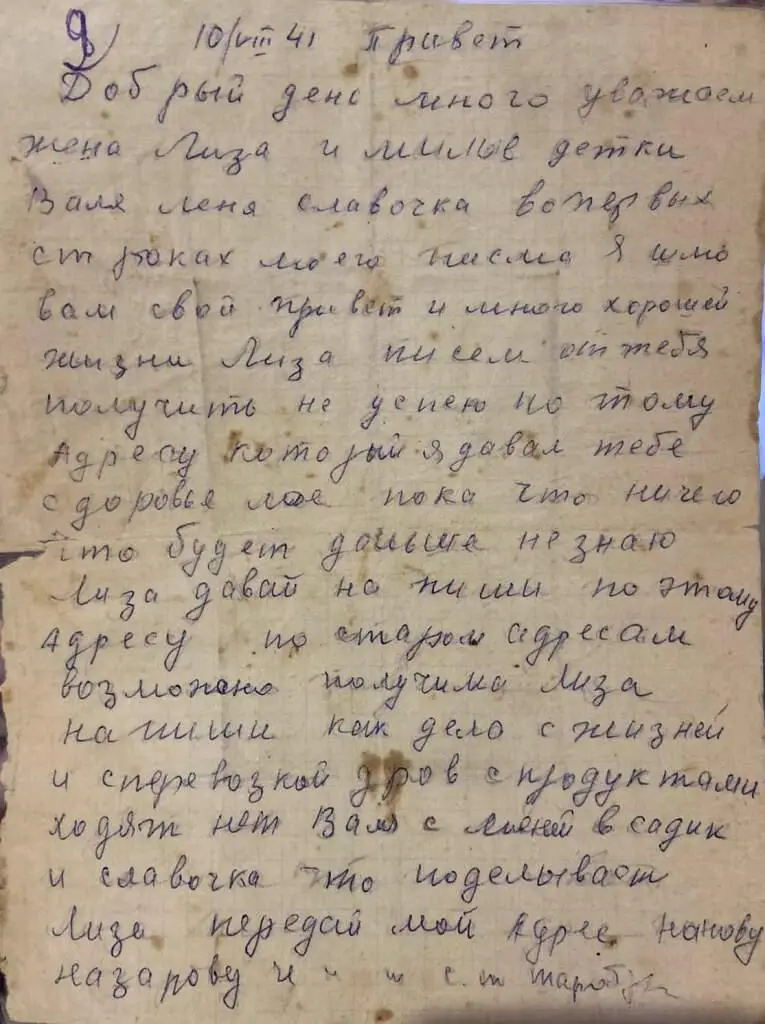 9) 10/VIII 41 Привет
Добрый день много уважаем
жена Лиза и милые детки
Валя Леня Славочка вопервых
строках моего писма я шлю
вам свой привет и много хорошей
жизни Лиза писем от тебя
получить не успею по тому
Адресу который я давал тебе
сдоровье мое пока что ничего
што будет даньше незнаю
Лиза давай на пиши по этому
Адресу по старом адресам
возможно получима Лиза
на пиши как дело с жизней
и сперевозкой дров спродуктами
ходят нет Валя с Леней в садик
и славочка что поделывает
Лиза передай мой Адрес
назарову